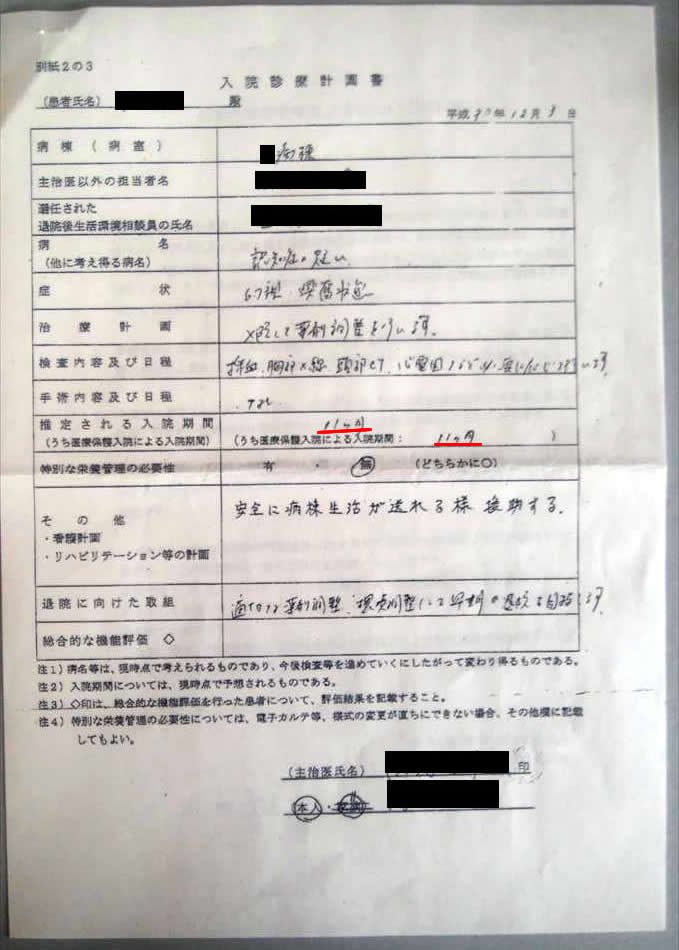 別紙2の3
入院診療計画書
(患者氏名) 殿
平成30年12月3日
病棟(病室) 病棟
主治医以外の担当者名
選任された
退院後生活環境相談員の氏名
病名
(他に考え得る病名)
認知症の疑い
症状 興奮状態
治療計画 として薬剤調整を行います。
検査内容及び日程 採血、胸部X線、頭部CT、心電図など
手術内容及び日程 なし
推定される入院期間 11ヶ月
(うち医療保護入院による入院期間) (うち医療保護入院による入院期間: 11ヶ月 )
特別な栄養管理の必要性 有・無 (どちらかに○)
その他
・看護計画
・リハビリテーション等の計画
安全に病棟生活が送れる様援助する。
退院に向けた取組 適切な薬剤調整、環境調整にて早期の退院を目指します
総合的な機能評価 ◇
注1)病名等は、現時点で考えられるものであり、今後検査等を進めていくにしたがって変わり得るものである。
注2)入院期間については、現時点で予想されるものである。
注3)◇印は、総合的な機能評価を行った患者について、評価結果を記載すること。
注4)特別な栄養管理の必要性については、電子カルテ等、様式の変更が直ちにできない場合、その他欄に記載
してもよい。
(主治医氏名) 印
本人・